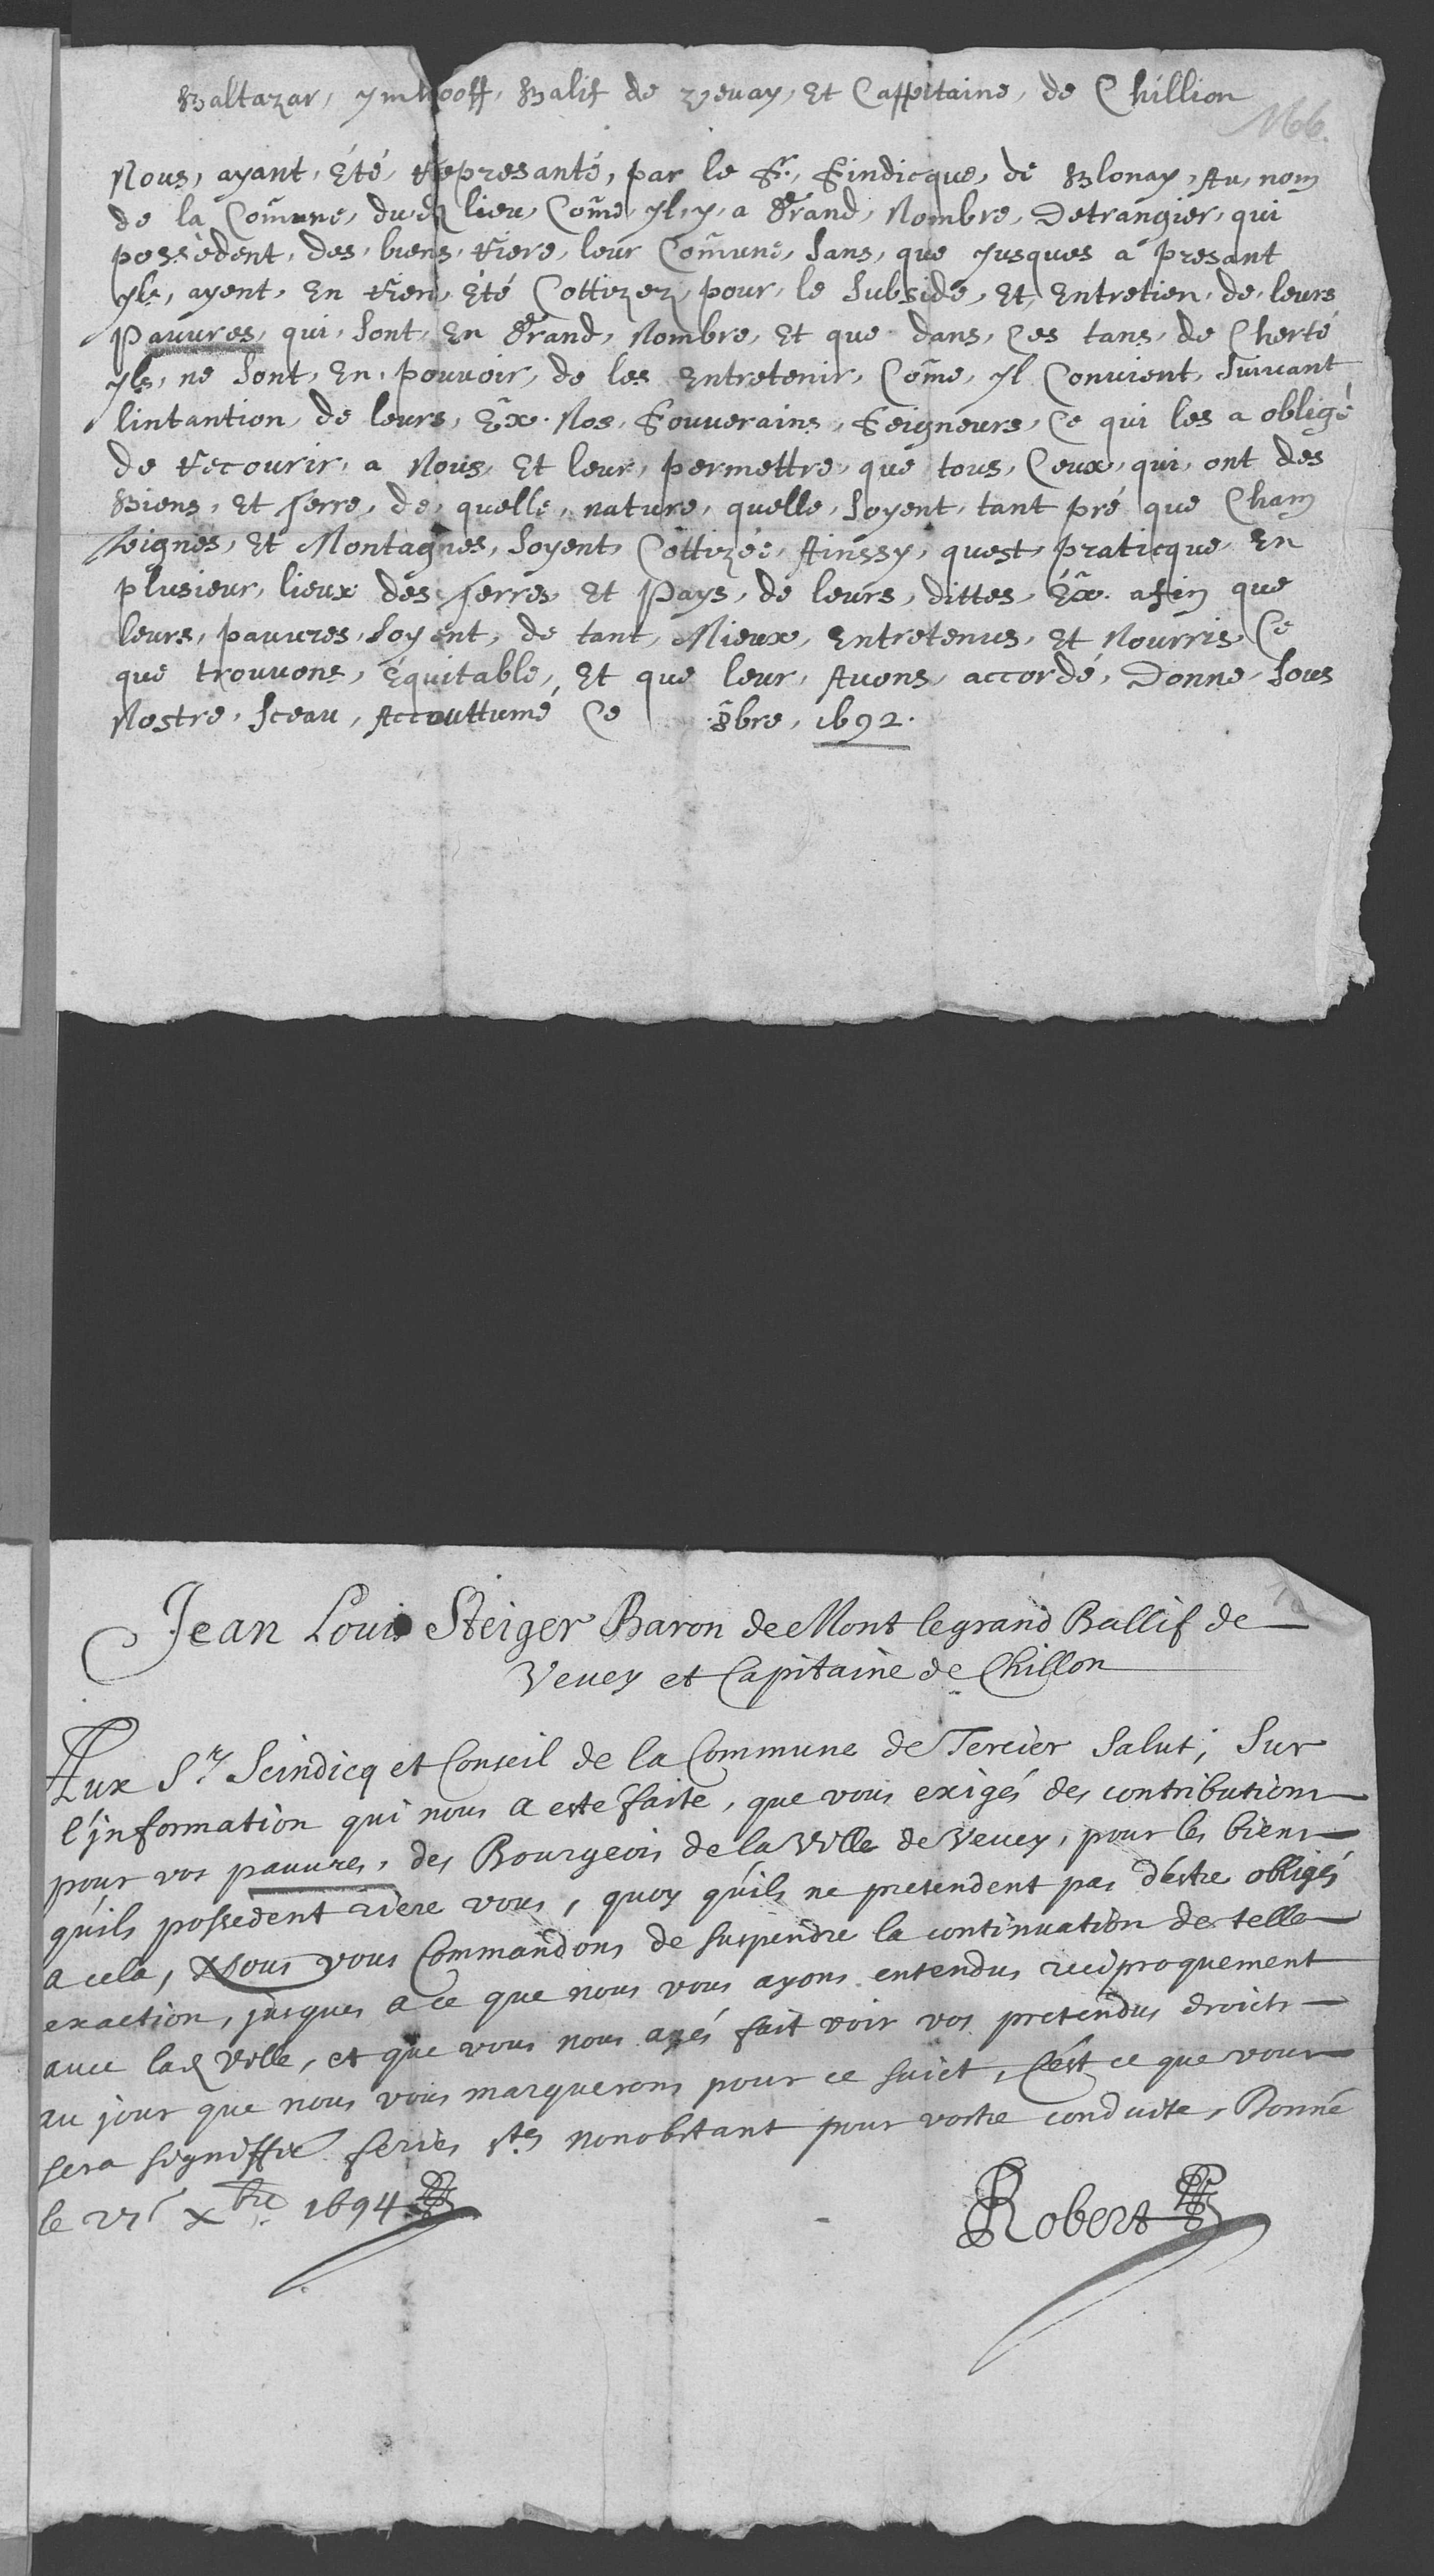 Baltazar, ymhooff, Balif de Vevay, Et Cappitaine, de Chillion
Nous, ayant, Été, Represanté, par le Sr., Sindicque, de Blonay, Au, nom
de la Com̃une, dud lieu, Com̃e, yl, y, a Grand, Nombre, Detrangier, qui
possèdent, des, biens, Riere, leur Com̃une, sans, que Jusques á presant
yls, ayent, En Rien, Été Cottizez, pour, le subside, Et, Entretien, de, leurs
pauvres, qui, sont, En Grand, Nombre, Et que dans, Ces tans, de Cherté
yls, ne sont, En, pouvoir, de les Entretenir, Com̃e, yl Convient, suivant
lintantion, de leurs, Ex̃. Nos, Souverains, Seigneurs, Ce qui les a obligé
de Recourir, a Nous, Et leur, permettre, que tous, Ceux, qui, ont des
Biens, Et Terre, de, quelle, nature, quelle, soyent, tant pré que Cham
Veignes, Et Montagnes, soyent, Cottizée, Ainssy, quest, praticque, En
plusieur, lieux des Terres, Et Pays, de leurs, dittes, Ex̃. afin que
leurs, pauvres, soyent, de tant, Mieux, Entretenus, Et Nourris, Ce
que trouvons, Équitable, Et que leur, Avons, accordé, Donne, sous
Nostre, sceau, Accouttumé Ce 8bre, 1692.
Jean Louis Steiger Baron de Mont le grand Ballif de
Vevey et Capitaine de Chillon
Aux Srs Scindicq et Conseil de la Commune de Tercier salut; Sur
l'jnformation qui nous a esté faite, que vous exigés des contributions
pour vos pauvres, des Bourgeois de la Ville de Vevey, pour les biens
qu'ils possedent riere vous, quoy qu'ils ne pretendent pas d'estre obligés
a cela, Nous vous Commandons de suspendre la continuation de telle
exaction, jusques a ce que nous vous ayons entendus reciproquement
avec lad Ville, et que vous nous ayés fait voir vos pretendus droicts
au jour que nous vous marquerons pour ce suict, C'est ce que vous
sera signiffié feries nonobstant pour vostre conduite, Donné
le xbre 1694
Robert